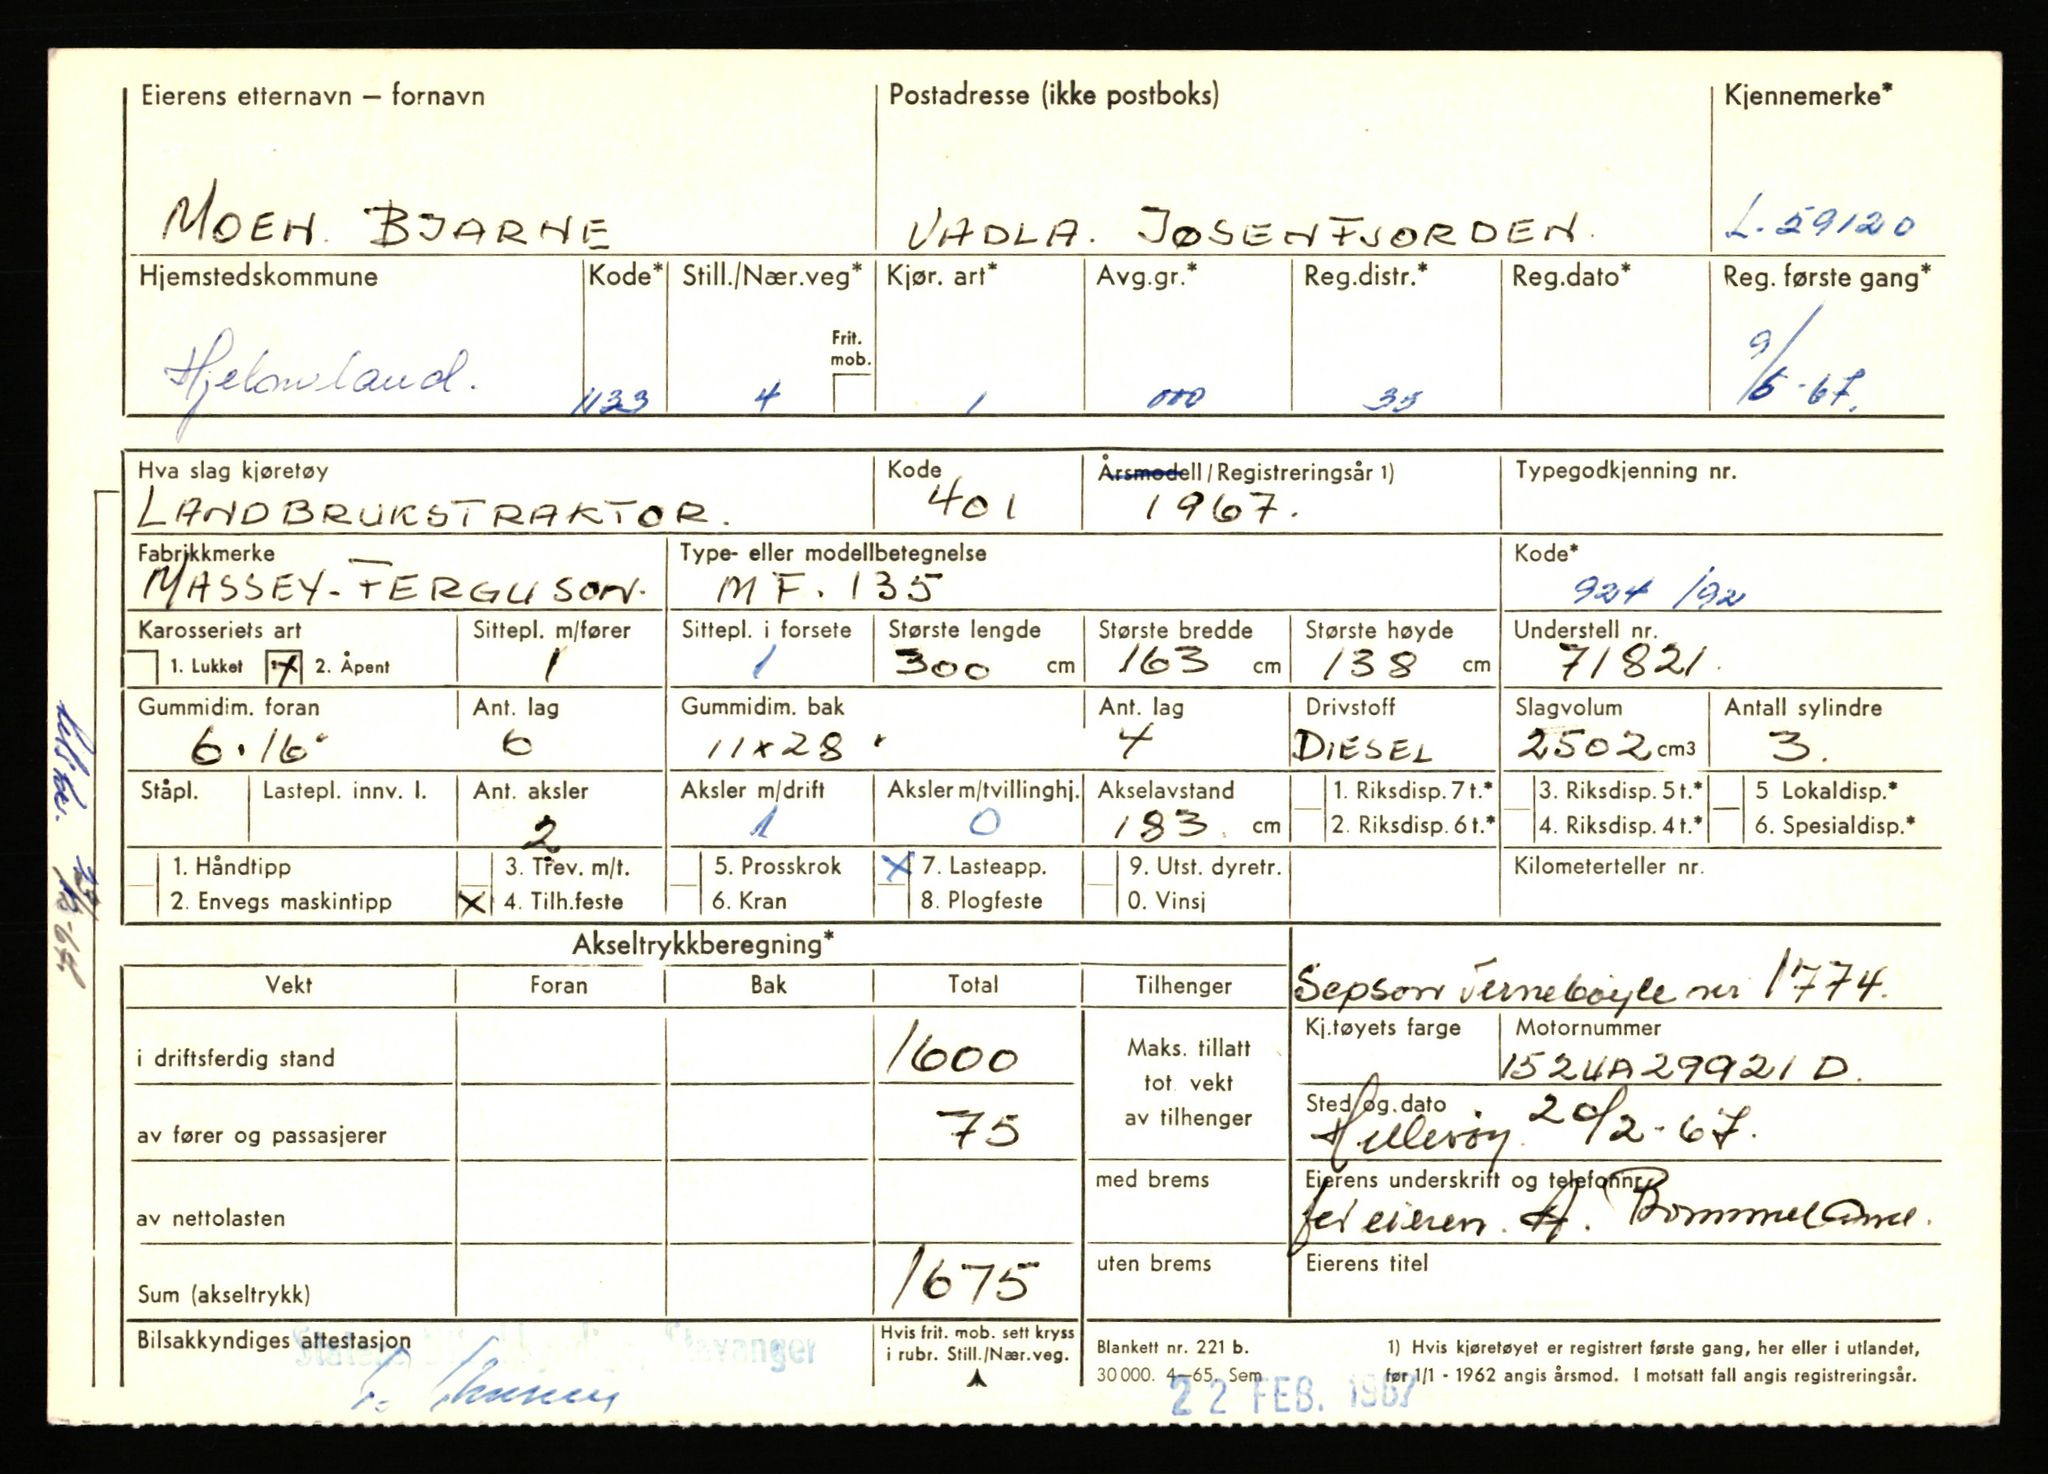 Eierens etternavn – fornavn Postadresse (ikke postboks) Kjennemerke*
MOEN. BJARNE VADLA. JØSENFJORDEN. L-59120
Hjemstedskommune Kode* Still./Nær.veg* Kjør. art* Avg.gr.* Reg.distr.* Reg.dato* Reg. første gang*
Frit. mob.
Hjelmeland. 1133 4 1 000 35 9/5-67.
Hva slag kjøretøy Kode Årsmodell/Registreringsår 1) Typegodkjenning nr.
LANDBRUKSTRAKTOR. 401 1967.
Fabrikkmerke Type- eller modellbetegnelse Kode*
MASSEY-FERGUSON. MF. 135 924 /92
Karosseriets art Sittepl. m/fører Sittepl. i forsete Største lengde Største bredde Største høyde Understell nr.
1. Lukket x 2. Åpent 1 1 300 cm 163 cm 138 cm 71821.
Gummidim. foran Ant. lag Gummidim. bak Ant. lag Drivstoff Slagvolum Antall sylindre
6.16" 6 11x28" 4 DIESEL 2502 cm3 3.
Ståpl. Lastepl. innv. l. Ant. aksler Aksler m/drift Aksler m/tvillinghj. Akselavstand 1. Riksdisp. 7 t.* 3. Riksdisp. 5 t.* 5 Lokaldisp.*
2 1 0 183. cm 2. Riksdisp. 6 t.* 4. Riksdisp. 4 t.* 6. Spesialdisp.*
1. Håndtipp 3. Trev. m/t. 5. Prosskrok x 7. Lasteapp. 9. Utst. dyretr. Kilometerteller nr.
2. Envegs maskintipp x 4. Tilh.feste 6. Kran 8. Plogfeste 0. Vinsj
Akseltrykkberegning*
Vekt Foran Bak Total Tilhenger Sepson nr 1774.
Kj.tøyets farge Motornummer
i driftsferdig stand 1600 Maks. tillatt tot. vekt av tilhenger 1524A29921D.
Sted og dato
av fører og passasjerer 75 20/2-67.
med brems Eierens underskrift og telefonnr.
av nettolasten for eieren. A. Bommeland.
uten brems Eierens titel
Sum (akseltrykk) 1675
Bilsakkyndiges attestasjon Hvis frit. mob. sett kryss i rubr. Still./Nær.veg. Blankett nr. 221 b. 1) Hvis kjøretøyet er registrert første gang, her eller i utlandet,
Stavanger 30 000. 4–65. Sem før 1/1 - 1962 angis årsmod. I motsatt fall angis registreringsår.
22 FEB. 1967